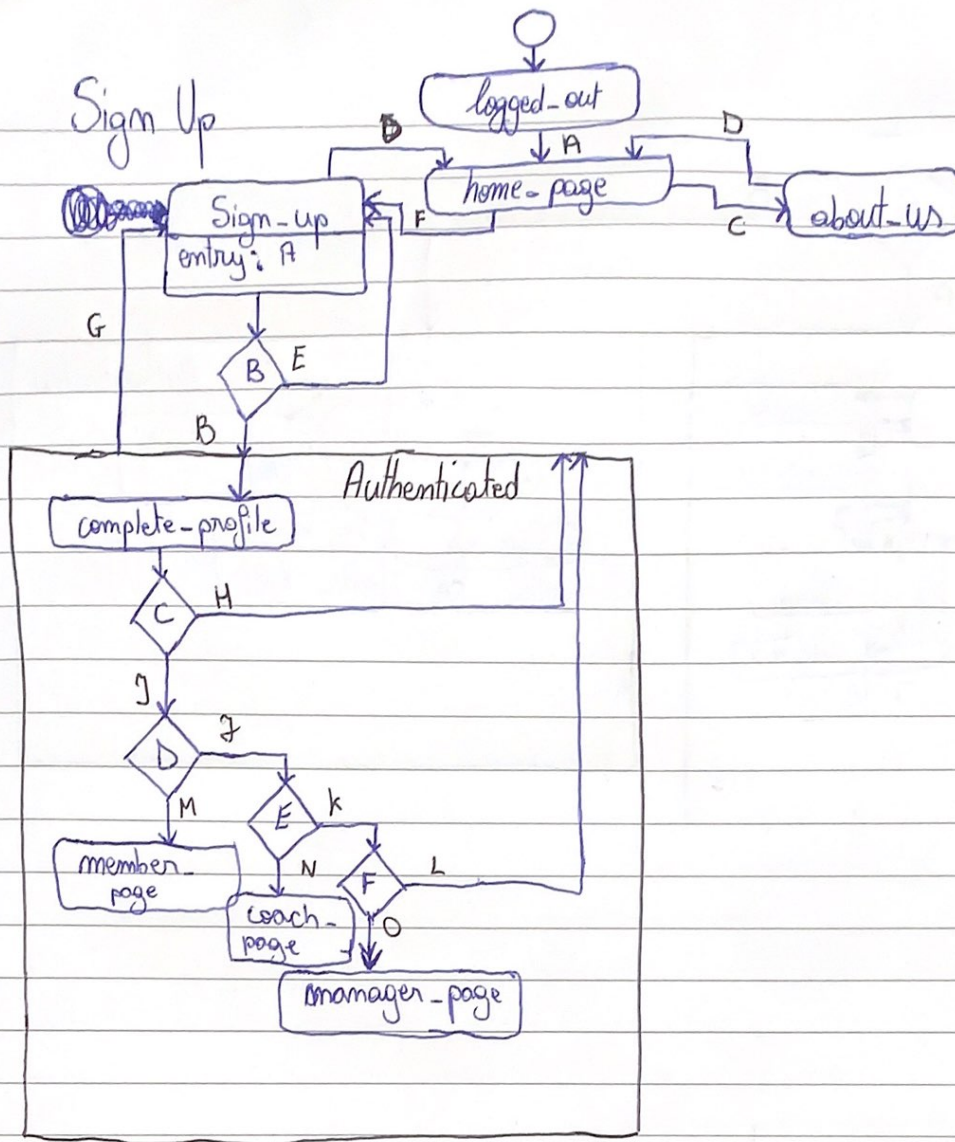 Sign Up
logged_out
A
D
D
home_page
Sign_up
F
C
about_us
entry: A
G
B
E
B
Authenticated
complete_profile
C
H
J
D
J
M
E
K
member_
page
N
F
L
coach_
page
O
manager_page